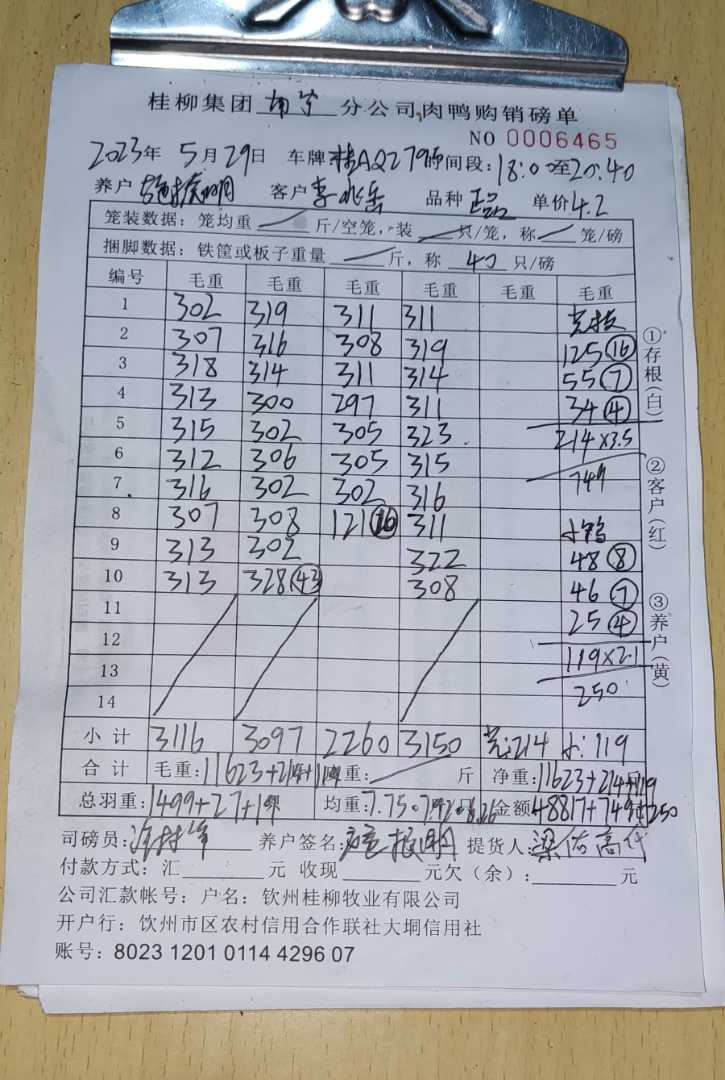 桂柳集团 南宁 分公司肉鸭购销磅单
NO 0006465
2023年 5月29日 车牌 桂AQ279 时间段:18:0 至20:40
养户 客户 李兆岳 品种 正品 单价4.2
笼装数据:笼均重 斤/空笼,装 只/笼,称 笼/磅
捆脚数据:铁筐或板子重量 斤,称 40 只/磅
编号 毛重 毛重 毛重 毛重 毛重 毛重
1 302 319 311 311
2 307 316 308 319 125⑯
3 318 314 311 314 55⑦
4 313 300 297 311 34④
5 315 302 305 323 214×3.5
6 312 306 305 315 749
7 316 302 302 316
8 307 308 121⑯ 311 小鸭
9 313 302 322 48⑧
10 313 328㊸ 308 46⑦
11 25④
12 119×2.1
13 250
14
小计 3116 3097 2260 3150 214 小:119
合计 毛重:11623+214+119 重: 斤 净重:11623+214+119
总羽重:1499+27+19 均重:7.75 金额:48817+749+250
司磅员: 养户签名: 提货人:
付款方式:汇 元 收现 元欠(余): 元
公司汇款帐号:户名:钦州桂柳牧业有限公司
开户行:钦州市区农村信用合作联社大垌信用社
账号:8023 1201 0114 4296 07
①存根(白)
②客户(红)
③养户(黄)